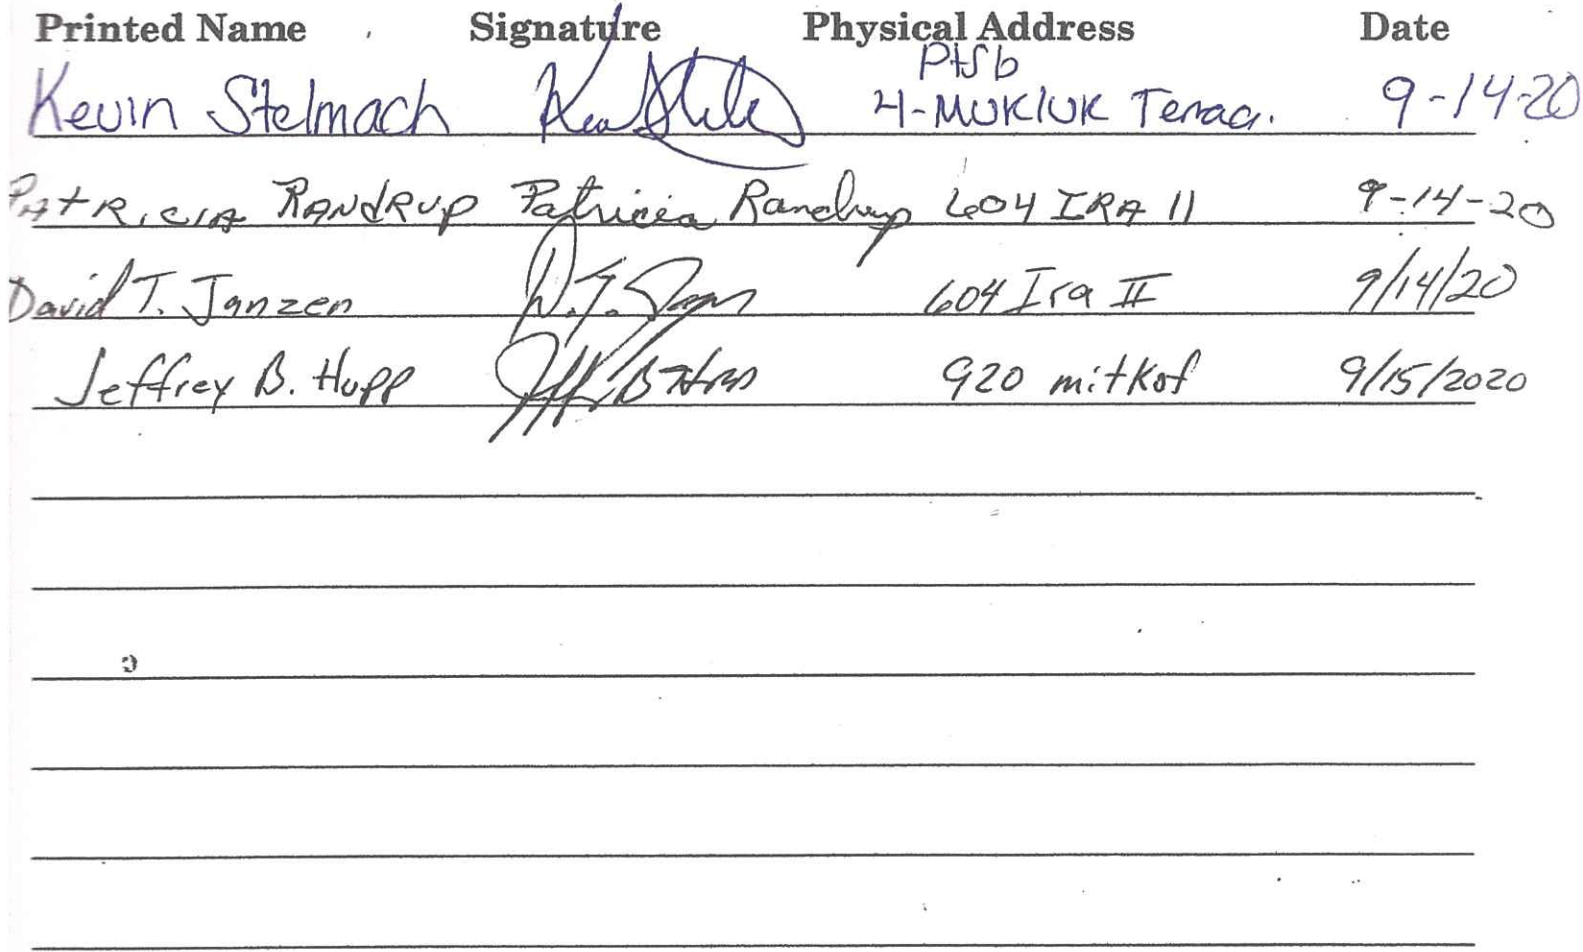 Printed Name Signature Physical Address Date
Ptsb
Kevin Stelmach 4-MUKLUK Terrace. 9-14-20
PAtRiciA RANdRup Patricia Randrup 604 IRA 11 9-14-20
David T. Janzen D.T. 604 Ira II 9/14/20
Jeffrey B. Hupp 920 mitkof 9/15/2020